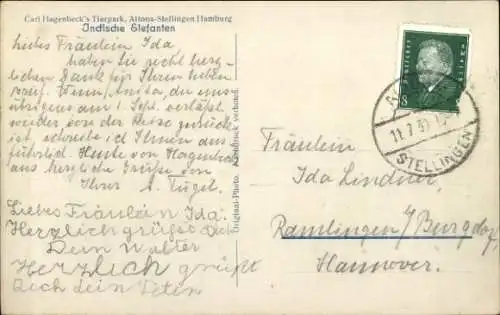 Carl Hagenbeck's Tierpark, Altona-Stellingen Hamburg
Indische Elefanten
Liebes Fräulein Ida
haben Sie recht herz-
lichen Dank für Ihren lieben
Anita, die uns
übrigens am 1. Sept. verläßt
wieder von der Reise zurück
ist schreibe ich Ihnen aus
führlich. Heute von Hagenbeck
aus herzliche Grüße von
Ihrer A.
Liebes Fräulein Ida.
Herzlich grüßt Dich
Dein Walter
Herzlich grüßt
Dich dein
Original-Photo. Nachdruck verboten.
Deutsches Reich
8
11.7.
STELLINGEN
Fräulein
Ida Lindner,
Ramlingen b/ Burgdorf
Hannover.